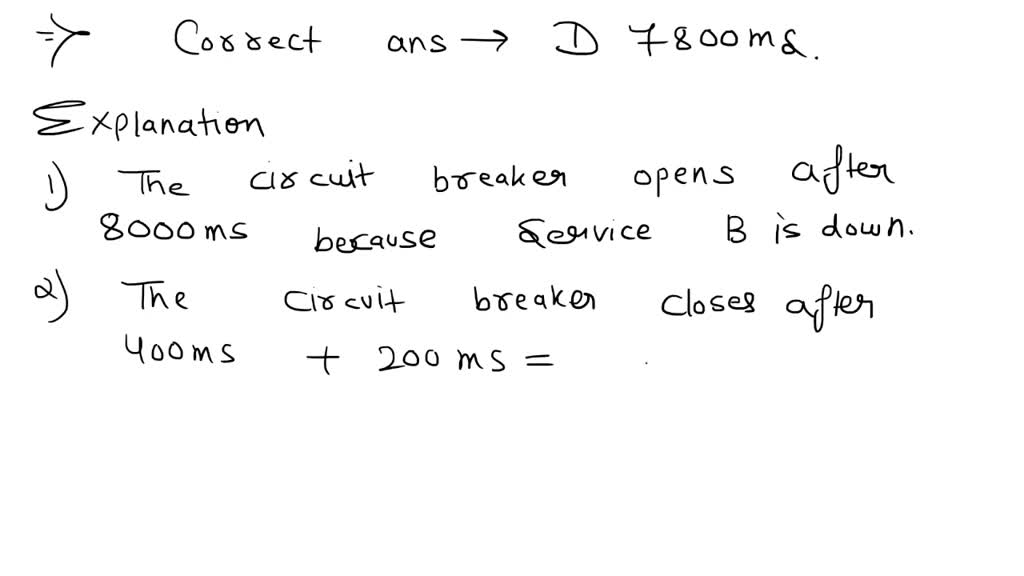 ⇒ Correct ans → D 7800ms.
Explanation
1) The circuit breaker opens after
8000ms because Service B is down.
2) The circuit breaker closes after
400ms + 200ms =